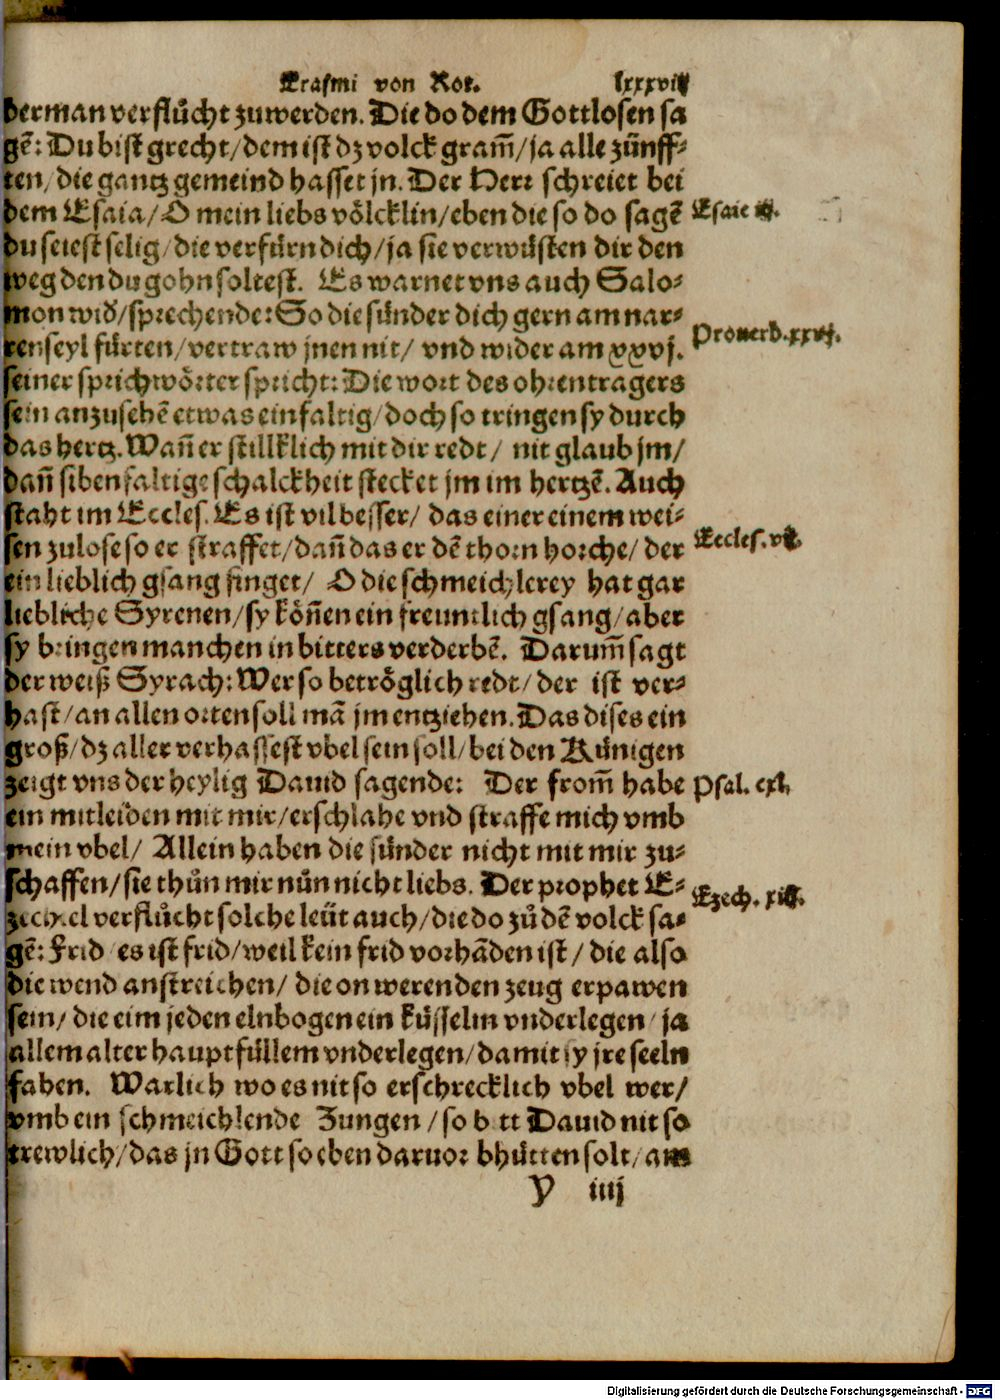 Erasmi von Rot. lxxxviij
derman verflůcht zuwerden. Die do dem Gottlosen sa
gē: Du bist grecht/dem ist dz volck gram̄/ja alle zünff-
ten/die gantz gemeind hasset jn. Der Herr schreiet bei
dem Esaia/O mein liebs völcklin/eben die so do sagē
Esaie iij.
du seiest selig/die verfürn dich/ja sie verwüsten dir den
weg den du gohn soltest. Es warnet vns auch Salo-
mon wid̄/sprechende: So die sünder dich gern am nar-
renseyl fürten/vertraw jnen nit/ vnd wider am xxvj.
Prouerb.xxvj.
seiner sprichwörter spricht: Die wort des ohrentragers
sein anzusehē etwas einfaltig/doch so tringen sy durch
das hertz. Wañ er stillklich mit dir redt/ nit glaub jm/
dañ sibenfaltige schalckheit stecket jm im hertzē. Auch
staht im Eccles. Es ist vil besser/ das einer einem wei-
sen zulose so er straffet/dañ das er dē thorn horche/ der
Eccles.vij.
ein lieblich gsang singet/ O die schmeichlerey hat gar
liebliche Syrenen/sy köñen ein freuntlich gsang/aber
sy bringen manchen in bitters verderbē. Darum̄ sagt
der weiß Syrach: Wer so betröglich redt/der ist ver-
hast/an allen orten soll mā jm entziehen. Das dises ein
groß/dz aller verhassest vbel sein soll/bei den Künigen
zeigt vns der heylig Dauid sagende: Der from̄ habe
Psal. cxl.
ein mitleiden mit mir/erschlahe vnd straffe mich vmb
mein vbel/ Allein haben die sünder nicht mit mir zu-
schaffen/sie thůn mir nůn nicht liebs. Der prophet E-
Ezech. xiij.
zechiel verflůcht solche leüt auch/die do zů dē volck sa-
gē: Frid es ist frid/weil kein frid vorhāden ist/ die also
die wend anstreichen/ die on werenden zeug erpawen
sein/ die eim jeden elnbogen ein küsselin vnderlegen/ja
allem alter hauptfüllem vnderlegen/damit sy jre seeln
fahen. Warlich wo es nit so erschrecklich vbel wer/
vmb ein schmeichlende Zungen/so bett Dauid nit so
trewlich/das jn Gott so eben daruor bhütten solt/ am
Y iiij
Digitalisierung gefördert durch die Deutsche Forschungsgemeinschaft - DFG